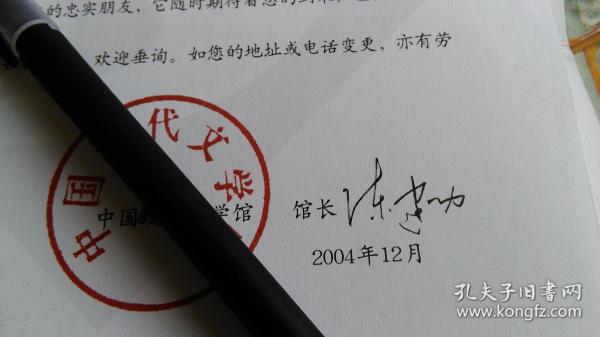 的忠实朋友，它随时期待着您的到来
欢迎垂询。如您的地址或电话变更，亦有劳
中国 代文学
中国 学馆 馆长 陈建功
2004年12月
孔夫子旧书网
www.kongfz.com